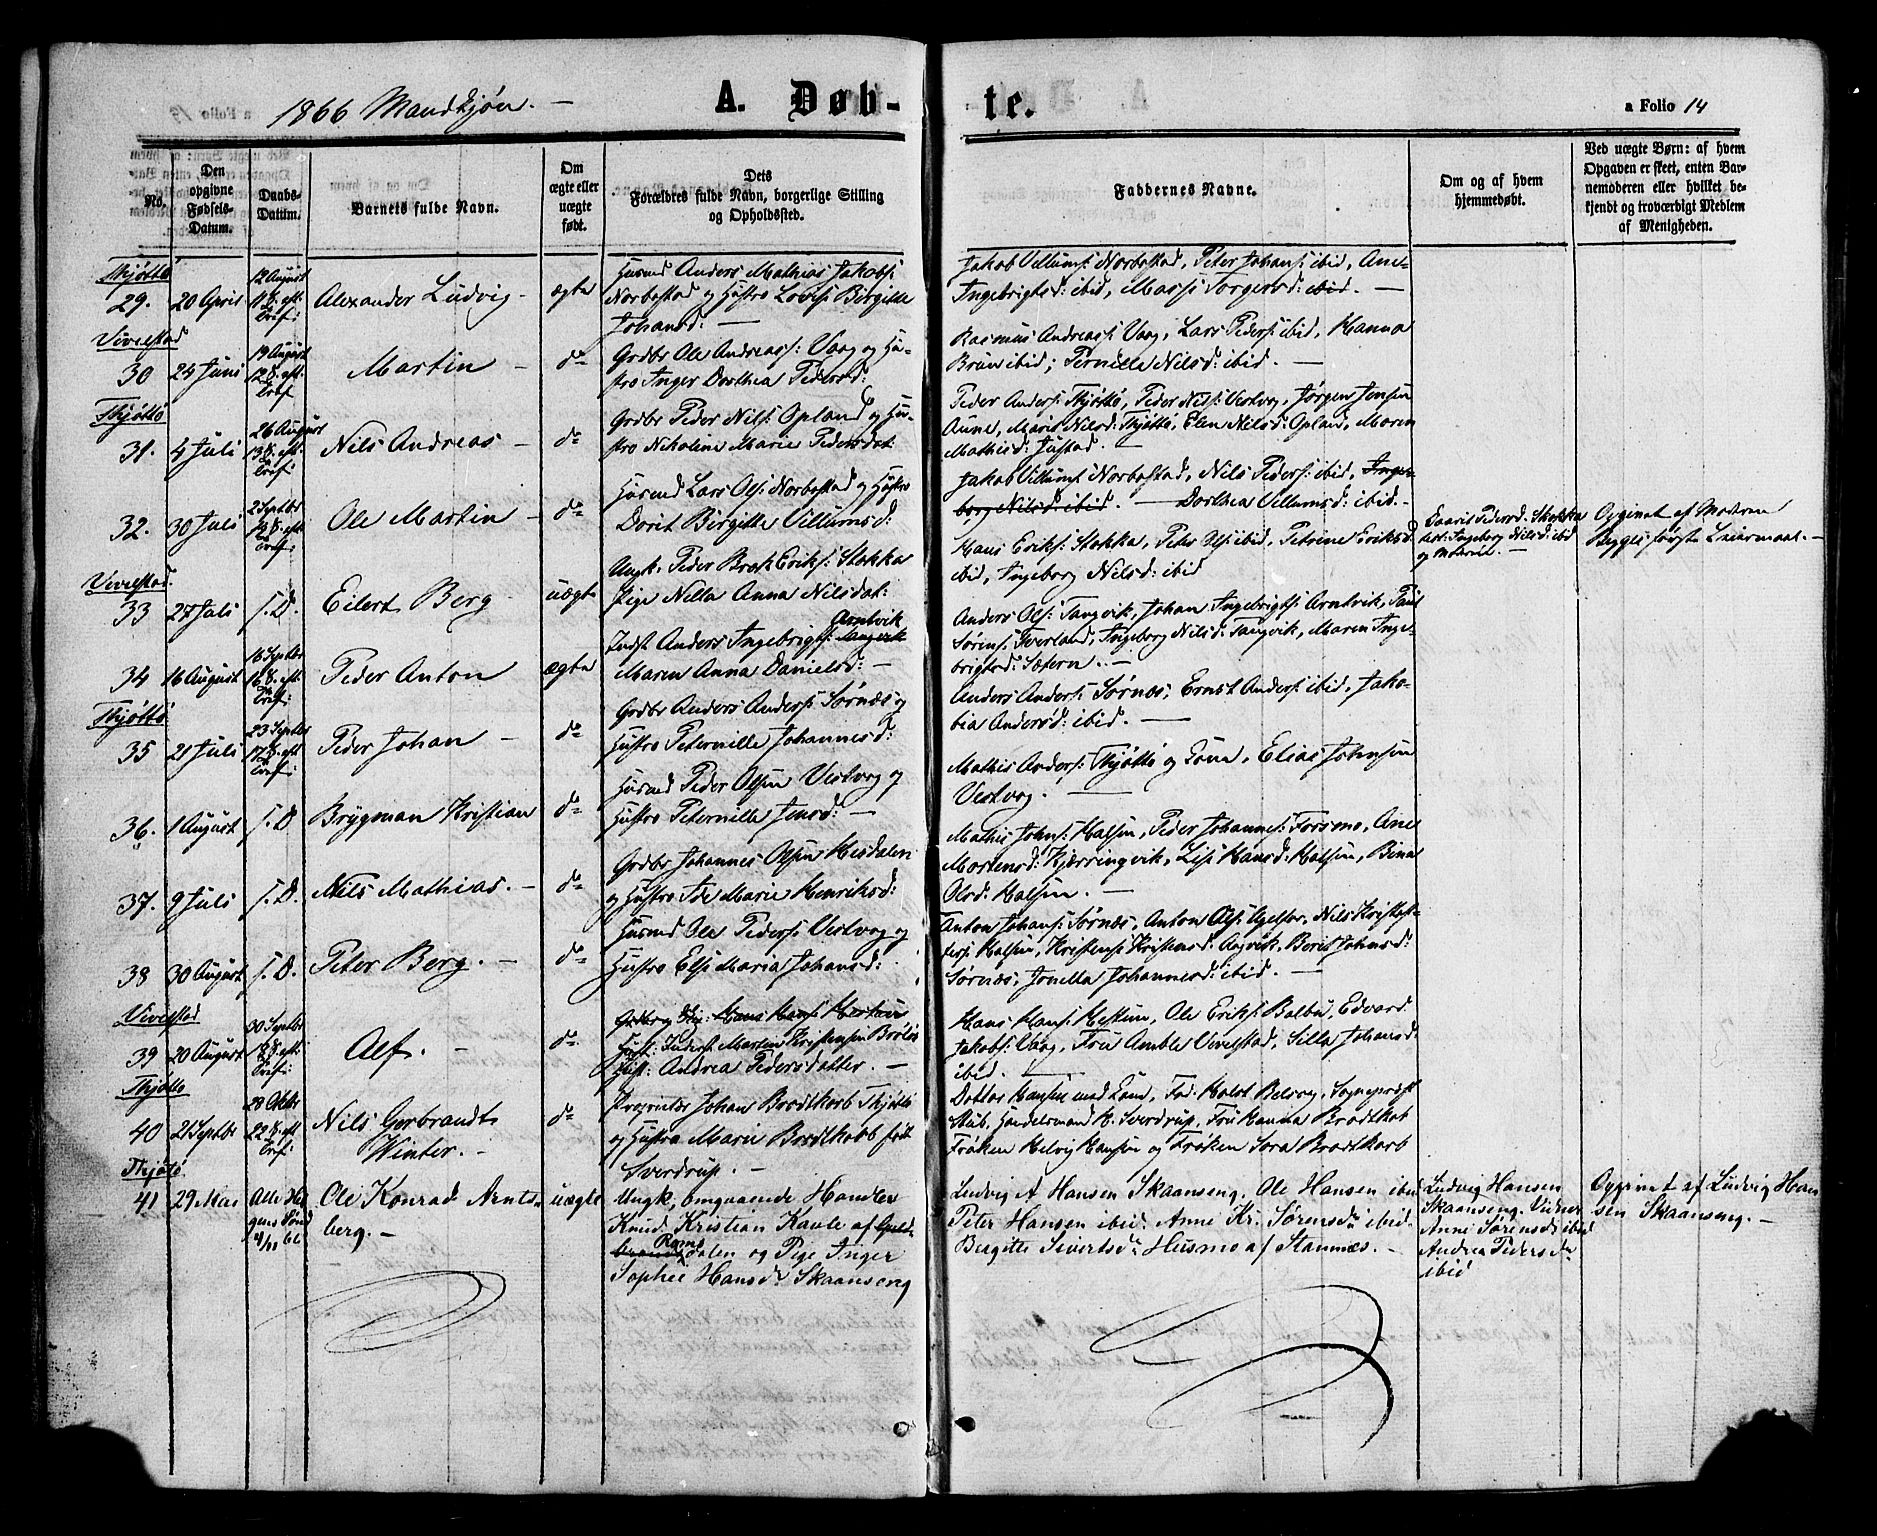 1866 Mandkjøn. —
A. Døb-
te.
a Folio 14
No.
Den opgivne Fødsels-Datum.
Daabs-Datum.
Barnets fulde Navn.
Om ægte eller uægte født.
Dets Forældres fulde Navn, borgerlige Stilling og Opholdssted.
Faddernes Navne.
Om og af hvem hjemmedøbt.
Ved uægte Børn: af hvem
Opgaven er skeet, enten Bar-
nemoderen eller hvilket be-
kjendt og troværdigt Medlem
af Menigheden.
Thjøttø
29. 20 April 12 August 11 S. eft: Tref: Alexander Ludvig - ægte
Husmd Anders Mathias Jakobs:
Norbostad og Hustro Lovise Birgitte
Johansd: —
Jakob Villums: Norbostad, Peter Johans: ibid, Ane
Ingebrigtsd: ibid, Torgersd: ibid. —
Vivelstad
30 24 Juni 19 August 12 S. eft: Tref Martin - do
Grdbr Ole Andreass: Vaag og Hu-
stro Inger Dorthea Pedersd:
Rasmus Andreass: Vaag, Lars Peders: ibid, Hanna
Brun ibid; Pernille Nilsd: ibid. —
Thjøttø
31. 4 Juli 26 August 13 S. eft: Tref: Nils Andreas - do
Grdbr Peder Nils: Opland og Hu-
stro Nikoline Marie Pedersdat
Peder Anders: Thjøttø, Peder Nils: Vestvog, Jørgen Jensen
Aune, Maris Nilsd: Thjøttø, Elen Nilsd: Opland, Maren
Mathisd: Justad. —
32. 30 Juli 2 Septbr 14 S. eft: Tref: Ole Martin - do
Husmd Lars Ols: Norbostad og Hustro
Dorit Birgitte Villumsd:
Jakob Villums: Norbostad, Nils Peders: ibid, Inge-
borg Nilsd: ibid. — Dorthea Villumsd: ibid. -
Vivelstad.
33 27 Juli s. D. Eilert Berg uægte
Ungk. Peder Brok Eriks: Stokka
Pige Nilla Anna Nilsdat:
Hans Eriks: Stokka, Peter Ols: ibid, Petrine Eriksd
ibid, Ingeborg Nilsd: ibid
Pedersd. Stokka
Ingeborg Nilsd: ibid
Opgivet af Moderen
Begges første Leiermaal. -
34 16 August 16 Septbr 16 S. eft: Tref: Peder Anton ægte
Arntvik
Indst Anders Ingebrigts: Tangvik
Maren Anna Danielsd: —
Anders Ols: Tangvik, Johan Ingebrigts: Arntvik, Paul
Sørens: Tverland, Ingeborg Nilsd: Tangvik, Maren Inge-
brigtsd: Sætern. —
Thjøttø
35 21 Juli 23 Septbr 17 S. eft Tref: Peder Johan - do
Grdbr Anders Anders: Sørnæs og
Hustro Peternille Johannesd:
Anders Anders: Sørnæs, Ernst Anders: ibid, Jako-
bia Andersd: ibid. —
36. 1 August s. D Brygman Kristian do
Husmd Peder Olsen Vestvog og
Hustro Peternille Jensd: —
Mathis Anders: Thjøttø og Kone, Elias Johnsen
Vestvog. —
37. 9 Juli s. D. Nils Mathias. - do
Grdbr Johannes Olsen Hesdalen
og Hustro Ide Marie Henriksd:
Mathis Johns: Halsen, Peder Johannes: Forsmo, Ane
Mortensd: Kjærringvik, Lise Hansd: Halsen, Bina
Olsd: Halsen. —
38 30 August s. D. Peter Berg. - do
Husmd Ole Peders: Vestvog og
Hustro Else Maria Johansd:
Anton Johans: Sørnæs, Anton Ols: , Nils Kristof-
fers: Halsen, Kristensd: , Berit Johnsd:
Sørnæs, Jonella Johannesd: ibid. —
Vivelstad
39 20 August 30 Septbr 18 S. eft: Tref: Alf. - do
Hans Hans:
Indst: Martin Kristensen Brøløs
Hust: Andrea Pedersdatter. —
Hans Hans: , Ole Eriks: Balbu, Edvard
Jakobs: Vaag, Fru Amble Vivelstad, Silla Johansd:
ibid. —
Thjøttø
40 21 Septbr 28 Oktbr 22 S. eft Tref: Nils Gerbrandt Winter. - do
Proprietær Johan Brodtkorb Thjøttø
og Hustro Marie Brodtkobb født
Sverdrup. -
Doktor Hansen med Kone, Fad. Holst Belvog, Sogneprest
Stub, Handelsmand H. Sverdrup, Fru Hanna Brodtkob
Frøken Helvig Hansen og Frøken Sora Brodtkorb
Thjøtø
41 29 Mai Alle Helgens Sønd 4/11 66 Ole Konrad Arnts-
berg. - uægte
Ungk, omgaaende Handler
Knud Kristian Kaule af Guld-
brandsdalen Roms og Pige Inger
Sophie Hansdr Skaanseng
Ludvig A Hansen Skaanseng, Ole Hansen ibid
Peter Hansen ibid. Anne Kr. Sørensdr ibid.
Birgitte Sivertsdr Husmo af Stamnæs. -
Ludvig Hansen
Skaanseng. Vidner
Anne Sørensdr ibid
Andrea Pedersdr
ibid
Opgivet af Ludvig Han
sen Skaanseng. -